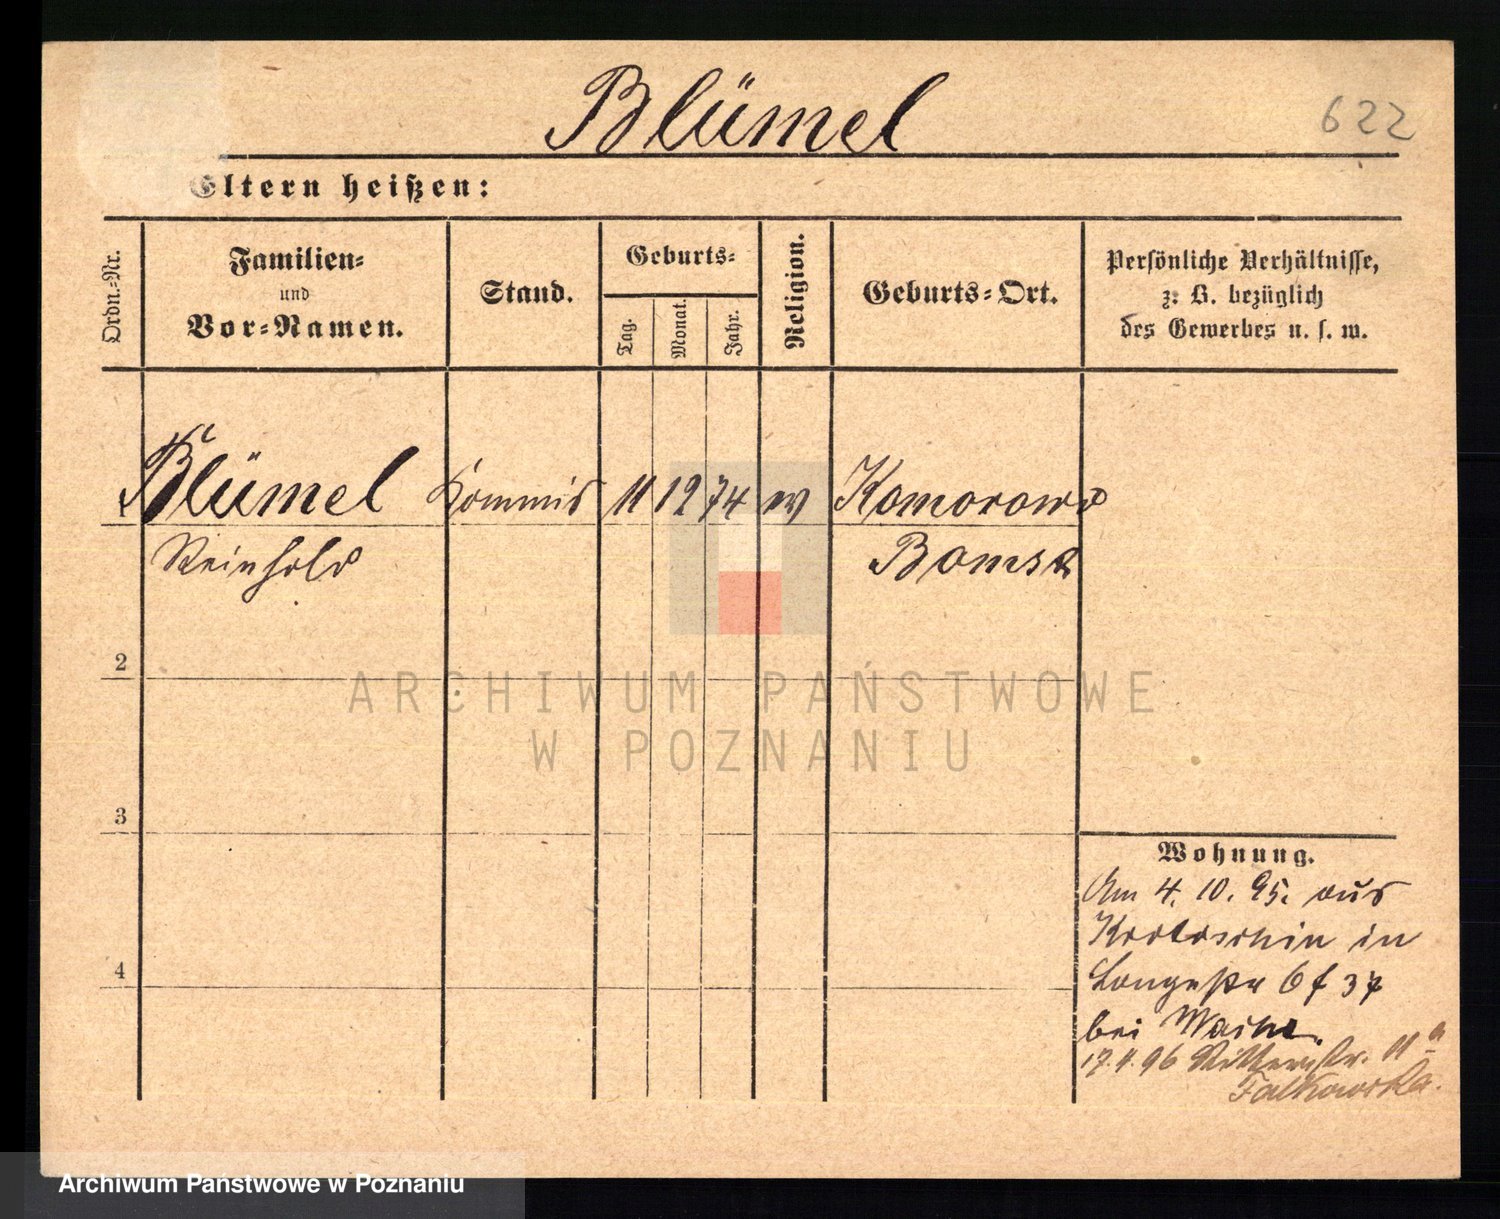 Blümel
622
Eltern heißen:
Ordn.-Nr.
Familien-
und
Vor-Namen.
Stand.
Geburts-
Tag.
Monat.
Jahr.
Religion.
Geburts-Ort.
Persönliche Verhältnisse,
z. B. bezüglich
des Gewerbes u. s. w.
Blümel Kommis 11 12 74 Komorowo
Reinhold Bomst
2
3
4
Wohnung.
Am 4. 10. 95. aus
Krotoschin in
Langestr 6
bei
17.4.96 Ritterstr. 11a
Falkowska.
ARCHIWUM PAŃSTWOWE
W POZNANIU
Archiwum Państwowe w Poznaniu